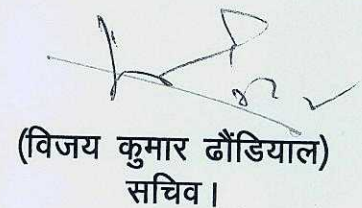 (विजय कुमार ढौंडियाल)
सचिव।